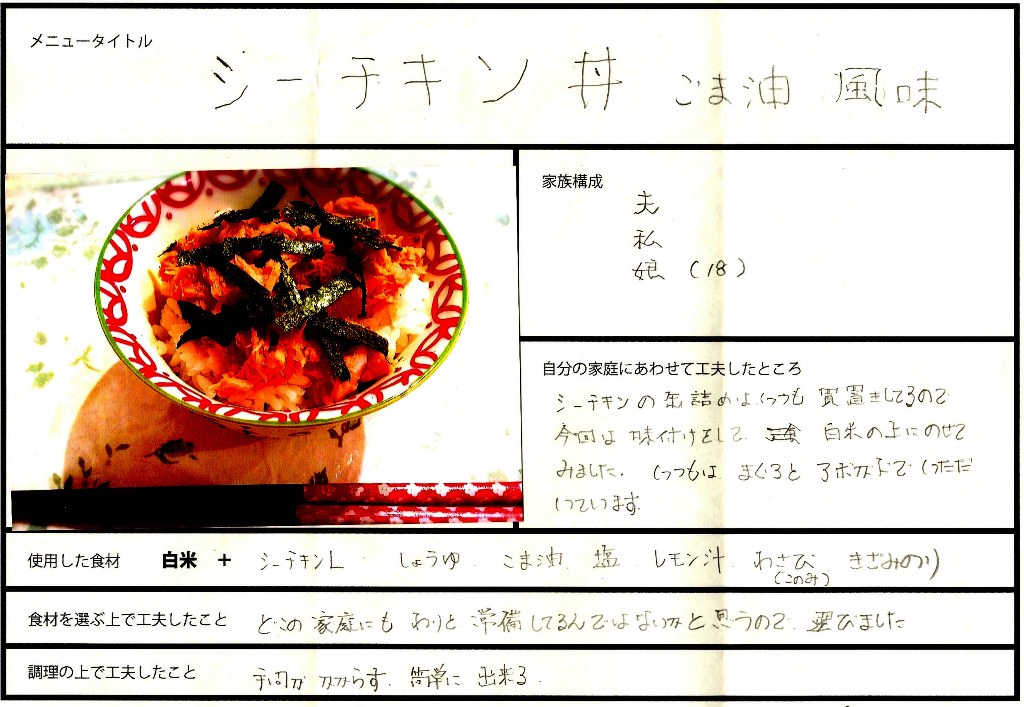 メニュータイトル
シーチキン丼 ごま油 風味
家族構成
夫
私
娘 (18)
自分の家庭にあわせて工夫したところ
シーチキンの缶詰めはいつも買置きしてるので
今回は味付けをして、白米の上にのせて
みました。いつもは、まぐろとアボカドでいただ
いています。
使用した食材 白米 + シーチキンL しょうゆ、ごま油、塩、レモン汁、わさび、きざみのり
(このみ)
食材を選ぶ上で工夫したこと どこの家庭にもわりと常備してるんではないかと思うので、選びました
調理の上で工夫したこと 手間がかからず、簡単に出来る。